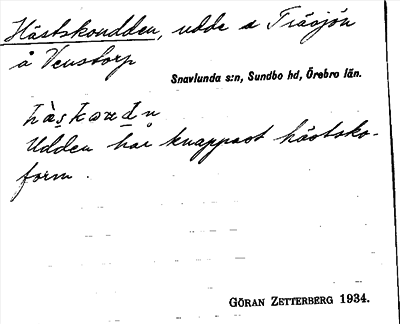 Hästskoudden, udde i Träsjön
å Venstorp
Snavlunda s:n, Sundbo hd, Örebro län.
Udden har knappast hästsko-
form.
GÖRAN ZETTERBERG 1934.